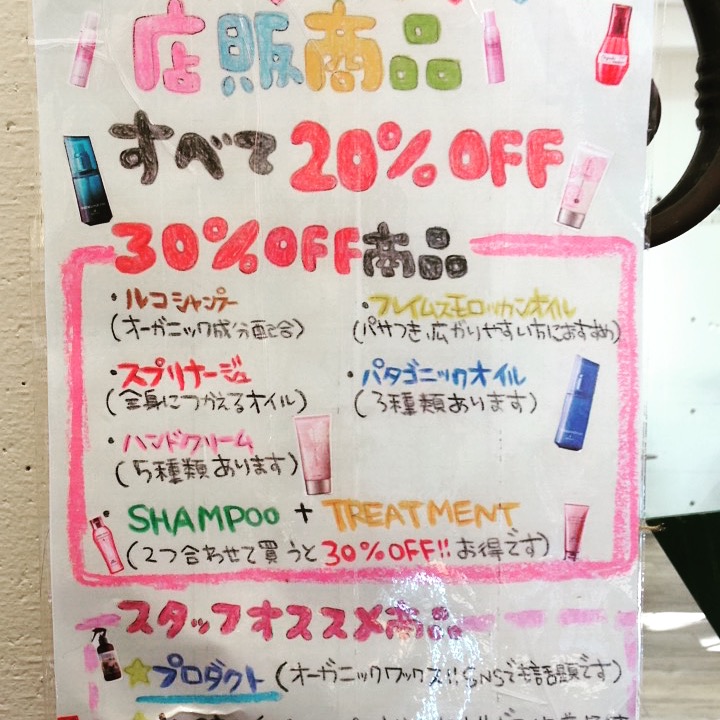 店販商品
すべて 20%OFF
30%OFF商品
・ルコシャンプー
(オーガニック成分配合)
・フレイムスモロッカンオイル
(パサつき、広がりやすい方におすすめ)
・スプリナージュ
(全身につかえるオイル)
・パタゴニックオイル
(3種類あります)
・ハンドクリーム
(5種類あります)
・SHAMPOO + TREATMENT
(2つ合わせて買うと30%OFF!! お得です)
スタッフオススメ商品
☆プロダクト(オーガニックワックス!! SNSで話題です)